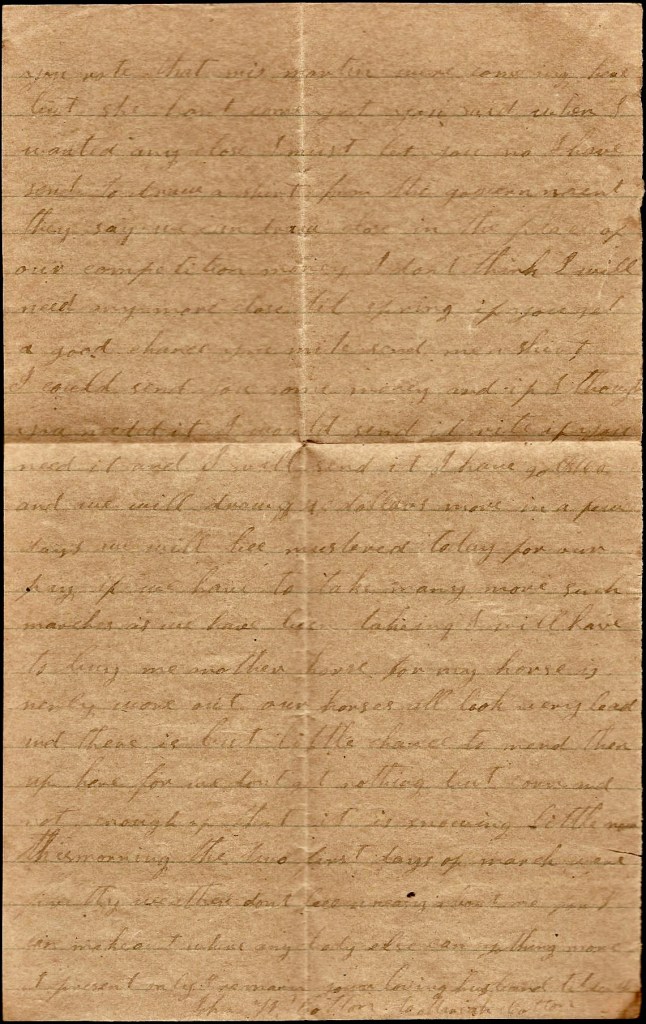 you rote that mis martin were coming here
but she dont come yet you said when I
wanted any close I must let you no I have
send to draw a shirt from the government
they say we can draw close in the place of
our competition money I dont think I will
need any more close til spring if you get
a good chance you mite send me a shirt
I could send you some money and if I thought
you needed it I would send it rite if you
need it and I will send it I have got
and we will draw dollars more in a few
days we will bee mustered today for our
pay if we have to take many more such
marches as we have been taking I will have
to buy me another horse for my horse is
nerly wore out our horses all look very bad
and there is but little chance to mend them
up here for we dont get nothing but corn and
not enough of that it is snowing little
this morning the two first days of march were
pretty weather dont bee uneasy about me for I
can make out where any body else can nothing more
at present only I remain your loving husband til death
John W Cotton Mariah Cotton